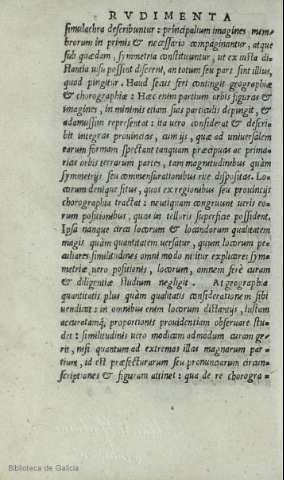 RVDIMENTA
simulachra describuntur: principalium imagines mem-
brorum in primis & necessario compaginantur, atque
sub quadam, symmetria constituuntur, ut ex iusta di-
stantia uisu possint discerni, an totum seu pars sint illius,
quod pingitur. Haud secus feri contingit geographiæ
& chorographiæ: Hæc enim partium orbis figuras &
imagines, in minimis etiam suis particulis depingit, &
adamussim repræsentat: ita uero considerat & descri-
bit integras prouincias, cum ijs, quæ ad uniuersalem
earum formam spectant tanquam præcipuas ac prima-
rias orbis terrarum partes, tam magnitudinibus quàm
symmetrijs seu commensurationibus rite dispositas. Lo-
corum denique situs, quos ex regionibus seu prouincijs
chorographia tractat: neutiquam congruunt ueris eo-
rum positionibus, quas in telluris superficie possident.
Ipsa nanque circa locorum & locandorum qualitatem
magis quàm quantitatem uersatur, quum locorum pe-
culiares similitudines omni modo nititur explicare, sym-
metriæ uero positionis, locorum, omnem ferè curam
& diligentiæ studium negligit. At geographia
quantitatis plus quàm qualitatis considerationem sibi
uendicat: in omnibus enim locorum distantijs, iustam
accuratamq; proportionis prouidentiam obseruare stu-
det: similitudinis uero modicam admodum curam ge-
rit, nisi quantum ad extremas illas magnarum par-
tium, id est præfecturarum seu prouinciarum circun-
scriptiones & figuram attinet: qua de re chorogra-
Biblioteca de Galicia